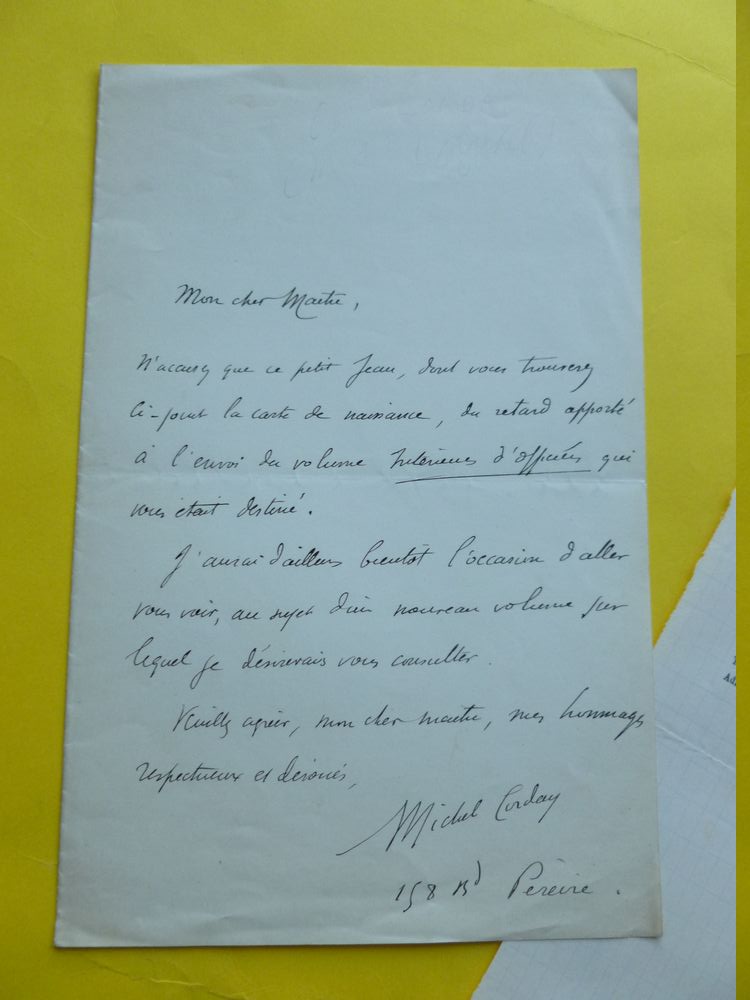 Mon cher Maitre,
N'accusez que ce petit Jean, dont vous trouverez
ci-joint la carte de naissance, du retard apporté
à l'envoi du volume Intérieurs d'officiers qui
vous était destiné.
J'aurai d'ailleurs bientôt l'occasion d'aller
vous voir, au sujet d'un nouveau volume sur
lequel je désirerais vous consulter.
Veuillez agréer, mon cher maitre, mes hommages
respectueux et dévoués,
Michel Corday
158 Bd Péreire.